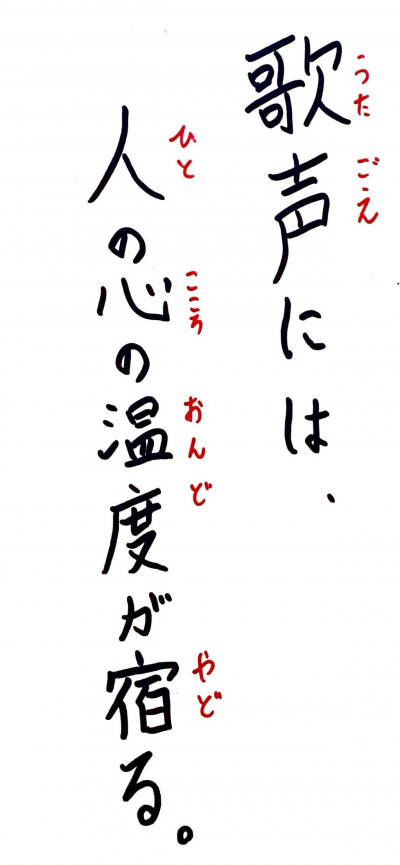 歌声には、
うたごえ
人の心の温度が宿る。
ひと こころ おんど やど